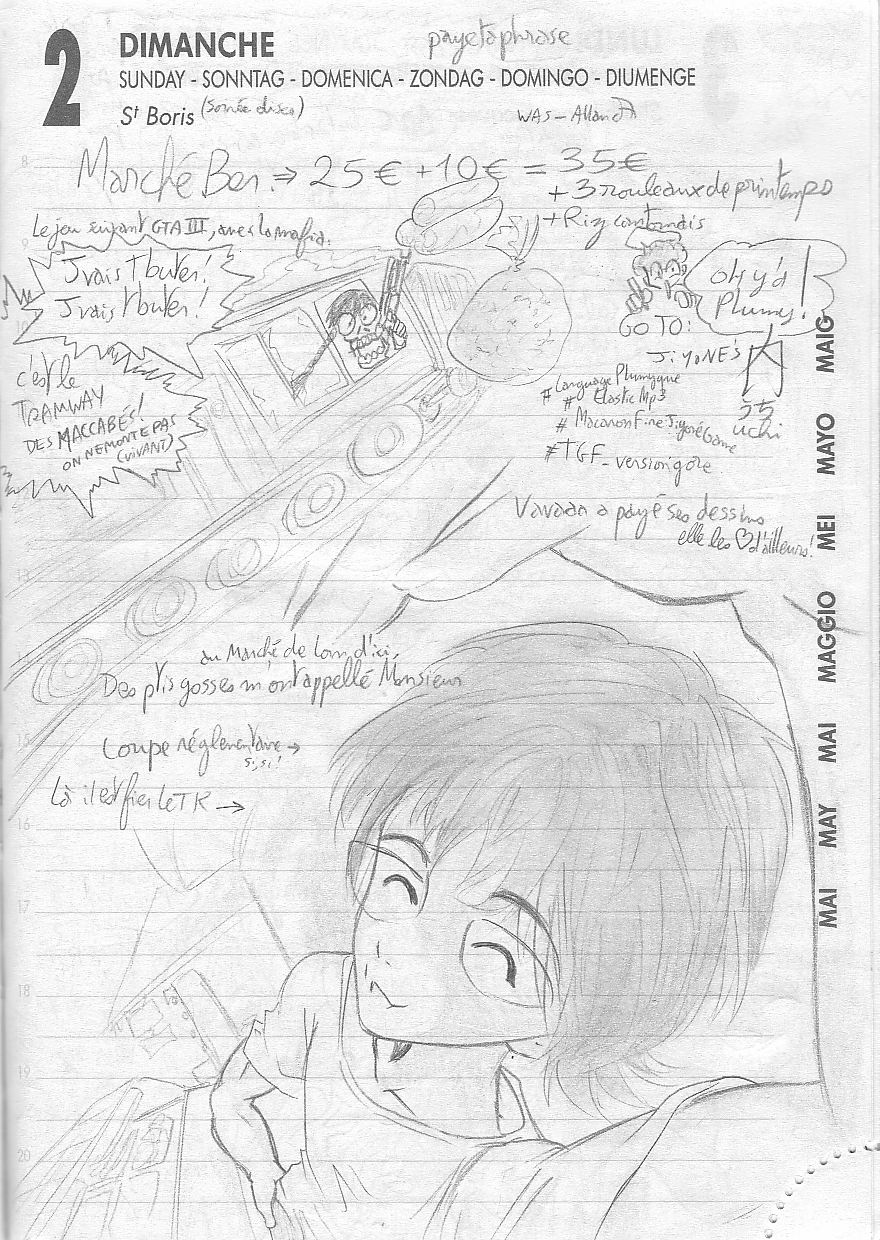 2
DIMANCHE
payetaphrase
SUNDAY - SONNTAG - DOMENICA - ZONDAG - DOMINGO - DIUMENGE
St Boris (Soirée disco)
WAS - Alland
8
Marché Ben. ⇒ 25€ + 10€ = 35€
+ 3 rouleaux de printemps
+ Riz cantonais
9
Le jeu suivant GTA III, avec la mafia.
J'vais t'buter!
J'vais t'buter!
oh y'a
Plumy!
10
GO TO:
JiYONE's
c'est le
TRAMWAY
DES MACCABÉS!
ON NE MONTE PAS
(VIVANT)
# Language Plumyque
# Elastic Mp3
# Macaron Fine Jiyoné Game
# TGF_version gore
うち
uchi
Vavaan a payé ses dessins
elle les ♡ d'ailleurs!
13
au Marché de Loin d'ici,
Des ptis gosses m'ont appellé Monsieur
15
Coupe réglementaire →
si, si!
Là il est fier le TK →
16
17
18
19
20
MAI MAY MAI MAGGIO MEI MAYO MAIG